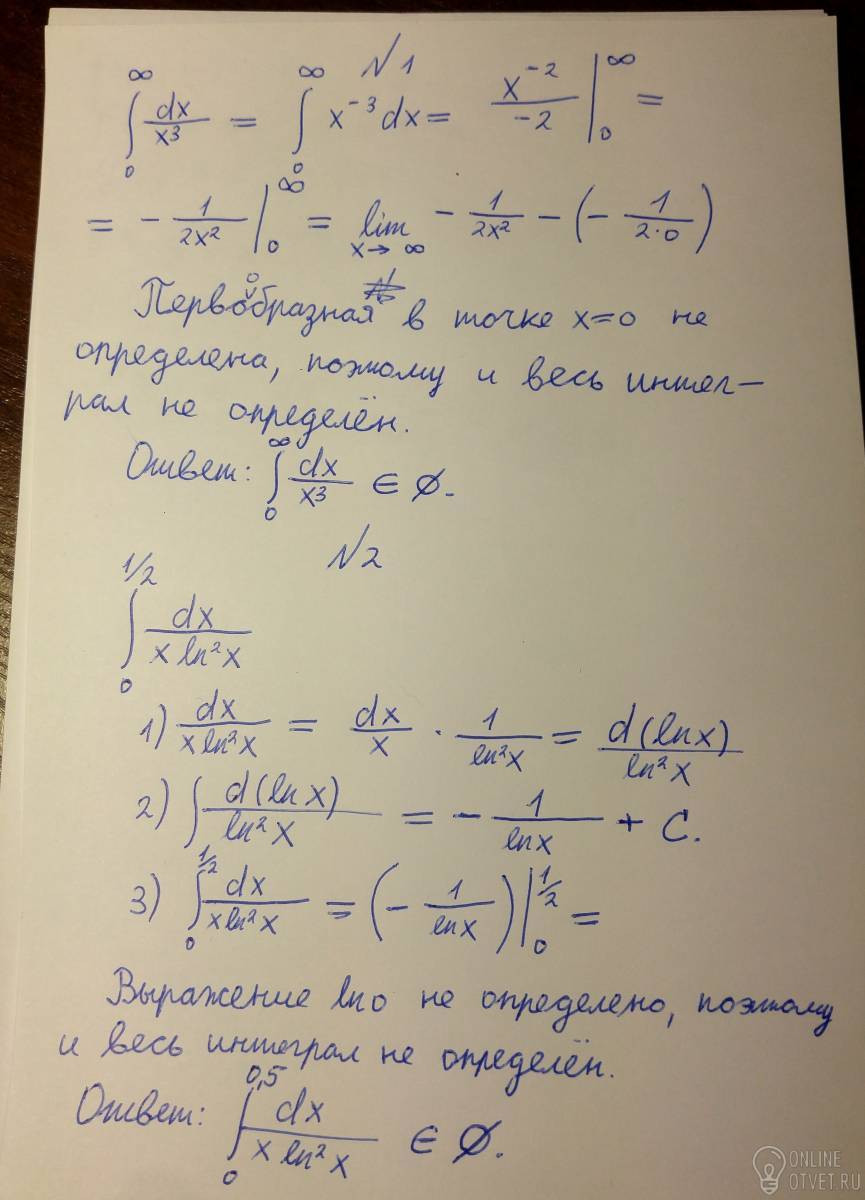 N1
∫₀^∞ dx/x³ = ∫₀^∞ x⁻³dx = x⁻²/-2 |₀^∞ =
= - 1/2x² |₀^∞ = lim x→∞ - 1/2x² - (- 1/2·0)
Первообразная в точке x=0 не
определена, поэтому и весь интег-
рал не определён.
Ответ: ∫₀^∞ dx/x³ ∈ ∅.
N2
∫₀^1/2 dx/x ln²x
1) dx/x ln²x = dx/x · 1/ln²x = d(lnx)/ln²x
2) ∫ d(lnx)/ln²x = - 1/lnx + C.
3) ∫₀^1/2 dx/x ln²x = (- 1/lnx) |₀^1/2 =
Выражение ln0 не определено, поэтому
и весь интеграл не определён.
Ответ: ∫₀^0,5 dx/x ln²x ∈ ∅.
ONLINE
OTVET.RU